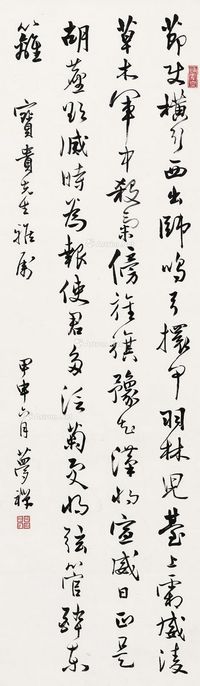 節使橫行西出師鳴弓擐甲羽林兒臺上霜威凌
草木軍中殺氣傍旌旗豫知漢將宣威日正是
胡塵欲滅時為報使君多泛菊更將弦管醉東
籬 寶貴先生雅屬 甲申六月 夢禪